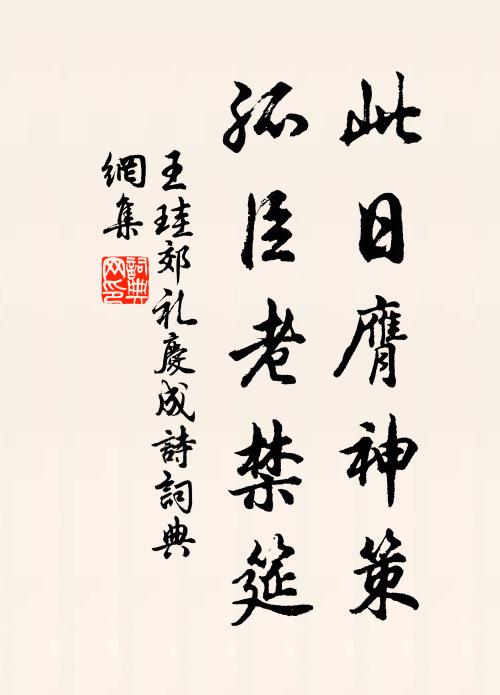 此日膺神策
孤臣老禁筵
王珪郊礼慶成詩詞典
網集
詞典
网印